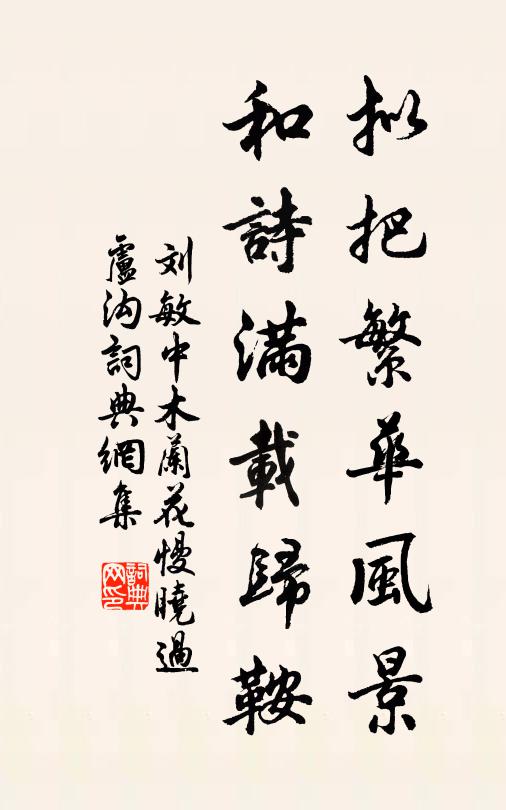 拟把繁華風景
和詩滿載歸鞍
刘敏中木蘭花慢曉過
盧沟詞典網集
詞典网印